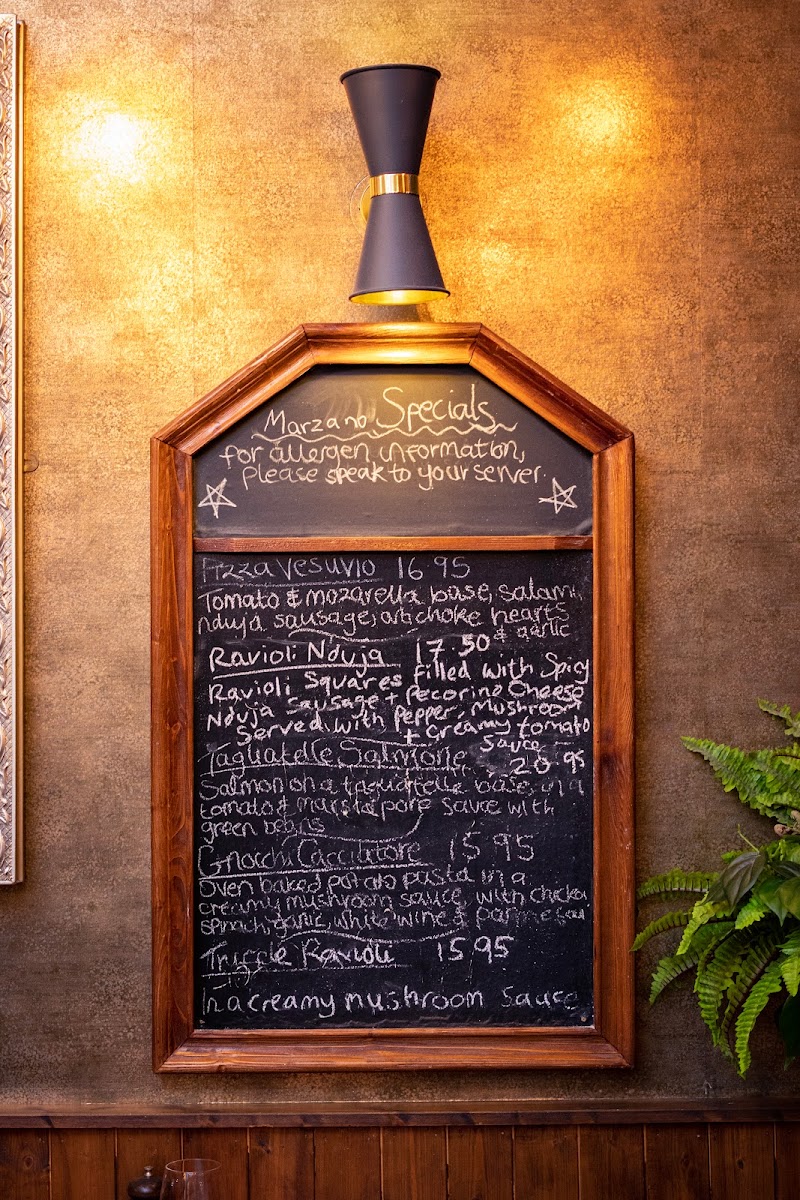 Marzano Specials
for allergen information,
please speak to your server.
Pizza Vesuvio 16 95
Tomato & mozarella base, salami,
nduja sausage, artichoke hearts
& garlic
Ravioli Nduja 17.50
Ravioli Squares filled with Spicy
Nduja Sausage + Pecorino Cheese
Served with Pepper, Mushroom
+ Creamy tomato
Sauce
Tagliatelle Salmone 20 95
Salmon on a tagliatelle base, in a
tomato & marscapone sauce with
green beans
Gnocchi Cacciatore 15 95
Oven baked potato pasta in a
creamy mushroom sauce, with chicken
spinach, garlic, white wine & parmesan
Ravioli 15 95
In a creamy mushroom Sauce